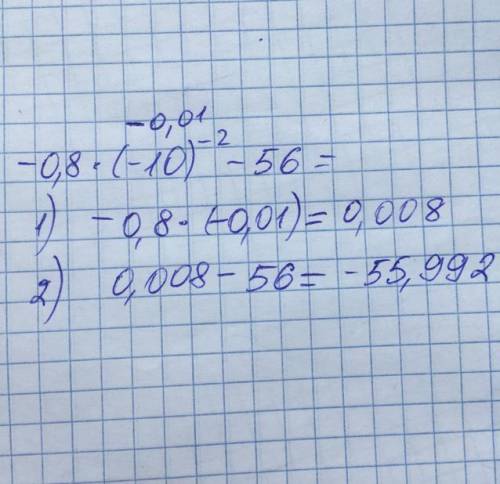 -0,01
-0,8 · (-10)⁻² - 56 =
1) -0,8 · (-0,01) = 0,008
2) 0,008 - 56 = -55,992